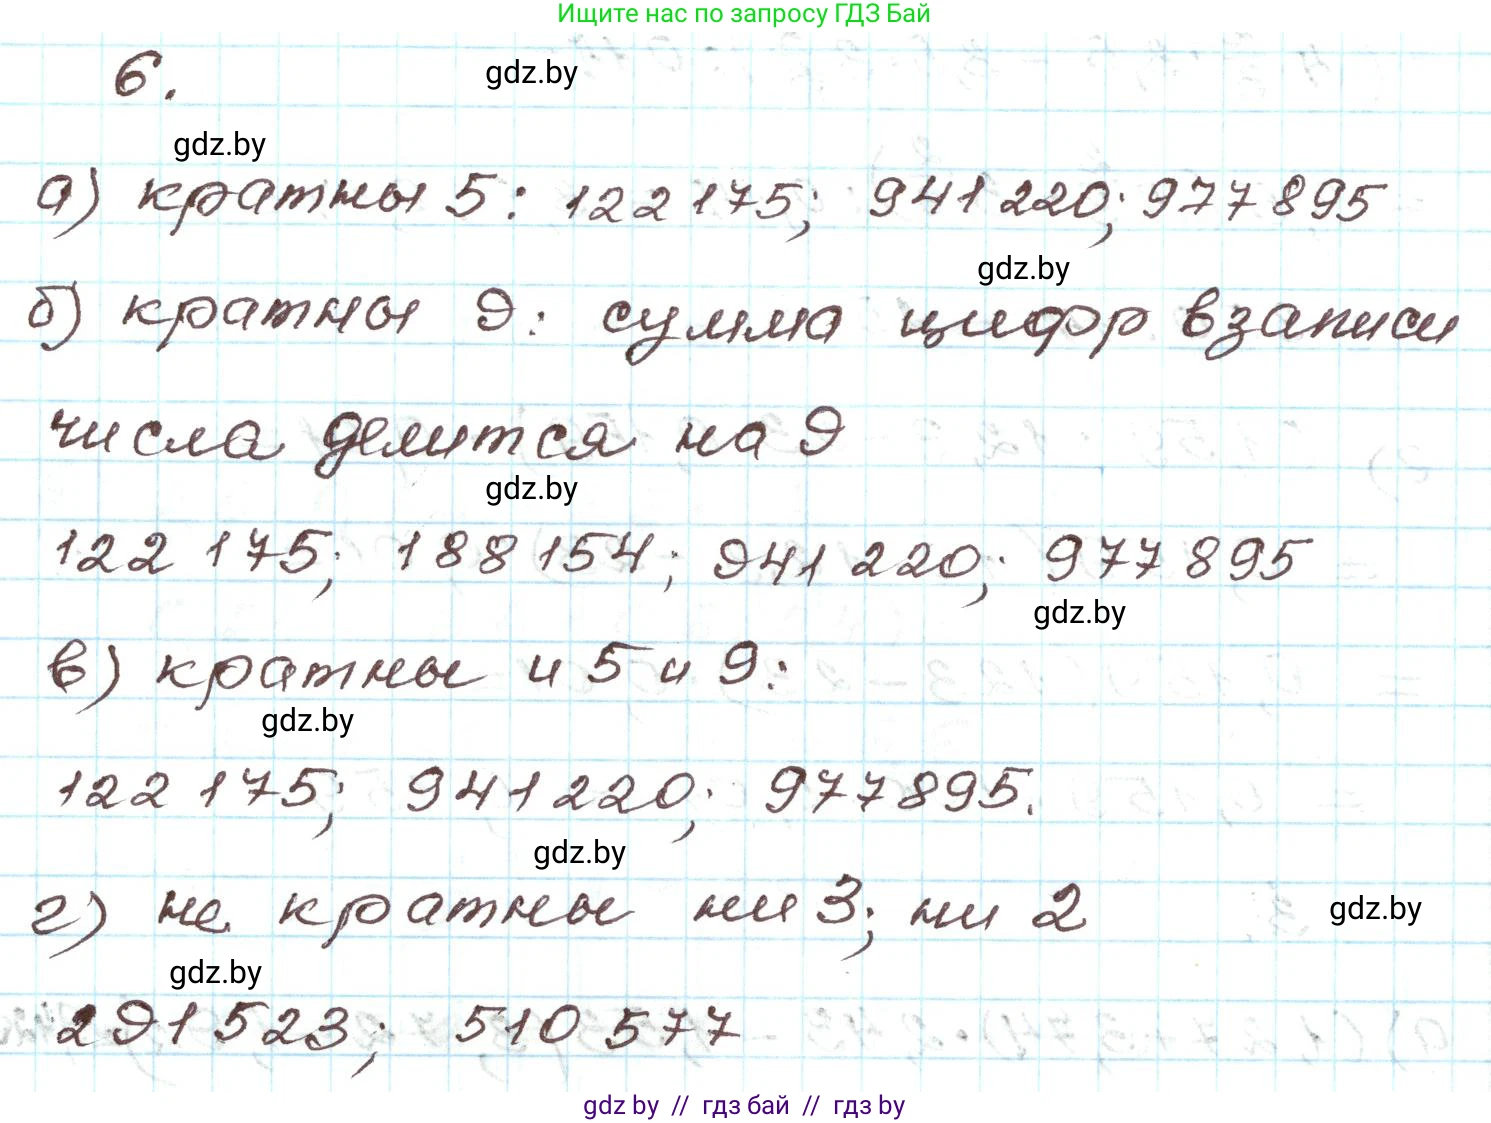 Ищите нас по запросу ГДЗ Бай
6.
gdz.by
gdz.by
а) кратны 5: 122 175; 941 220; 977 895
gdz.by
б) кратны 9: сумма цифр в записи
числа делится на 9
gdz.by
122 175; 188 154; 941 220; 977 895
gdz.by
в) кратны и 5 и 9:
gdz.by
122 175; 941 220; 977 895.
gdz.by
г) не кратны ни 3; ни 2
gdz.by
gdz.by
291 523; 510 577
gdz by // гдз бай // гдз by